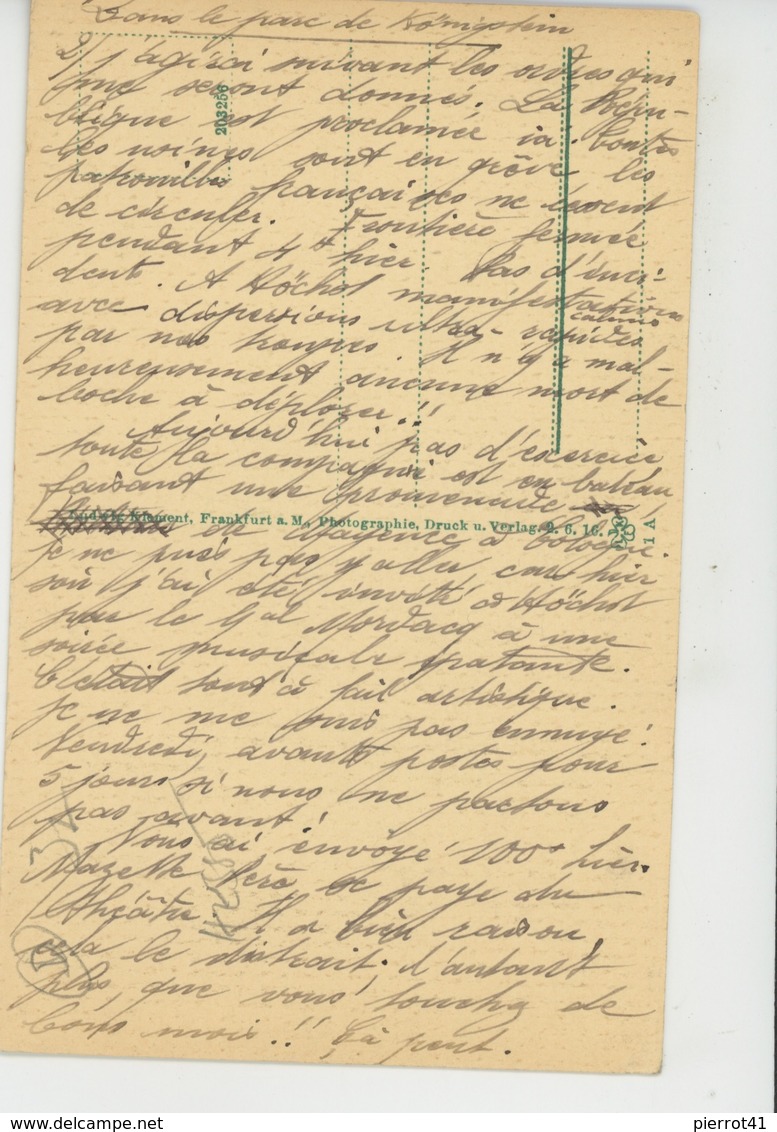 Dans le parc de Königstein
2/ J'agirai suivant les ordres qui
me seront donnés. La Répu-
blique est proclamée ici. Toutes
les usines sont en grève les
patrouilles françaises ne cessent
de circuler. Frontière fermée
pendant 4 h hier. Pas d'inci-
dents. A Höchst manifestations
calmes
avec dispersions ultra-rapides
par nos troupes. Il n'y a mal-
heureusement aucune mort de
boche à déplorer !!
Aujourd'hui pas d'exercice
toute la compagnie est en bateau
faisant une promenade
Ludwig Klement, Frankfurt a. M., Photographie, Druck u. Verlag. 9. 6. 16.
1 A
203256
de Mayence à Cologne.
Je ne puis pas y aller car hier
soir j'ai été invité à Höchst
par le Gal Mordacq à une
soirée musicale épatante.
C'était tout à fait artistique.
Je ne me suis pas ennuyé.
Vendredi, avants postes pour
5 jours si nous ne partons
pas avant !
Vous ai envoyé 100 hier.
Mazette Père se paye du
théâtre. Il a bien raison,
cela le distrait. d'autant
plus, que vous touchez de
bons mois !! Çà peut.
pierrot41